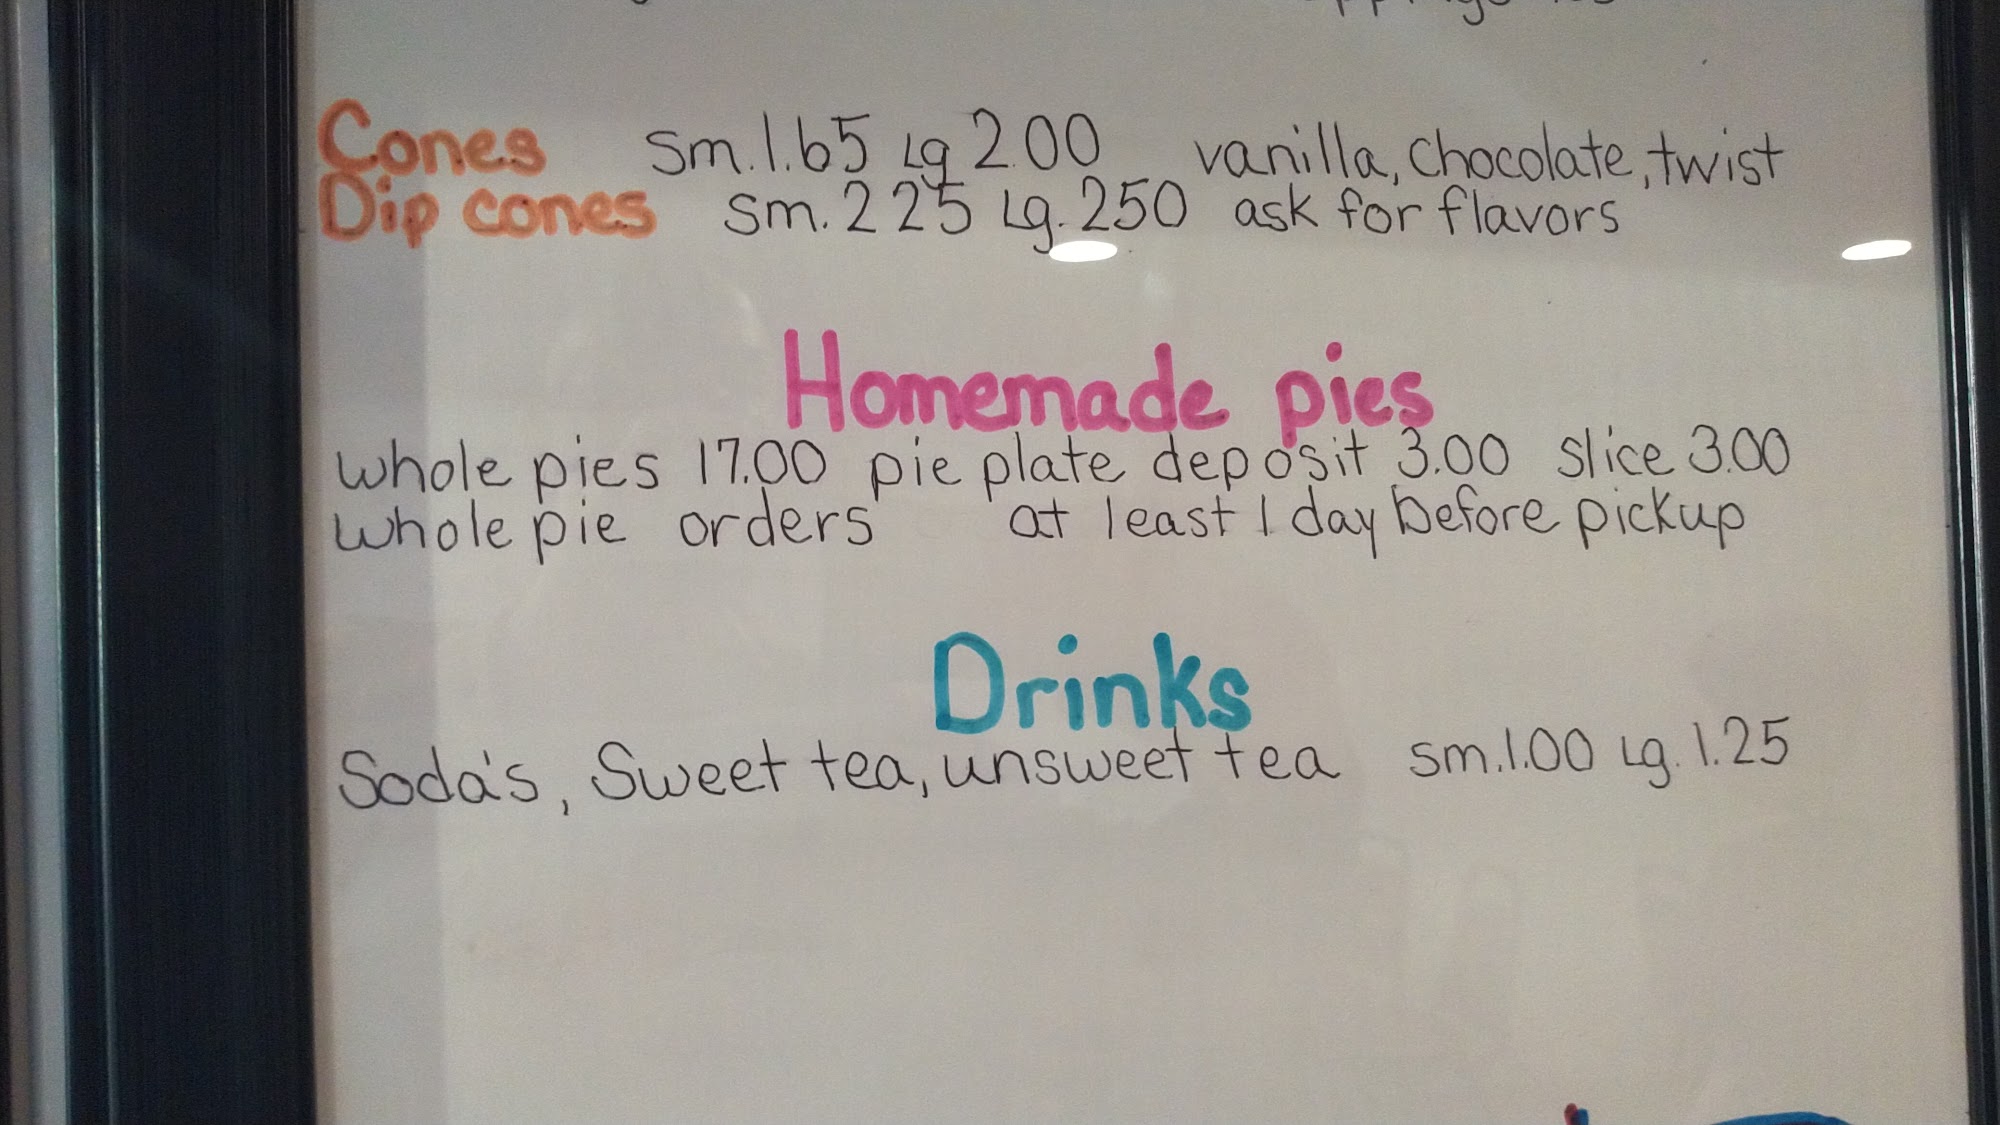 Cones sm. 1.65 Lg 2.00 vanilla, chocolate, twist
Dip cones sm. 2 25 Lg. 250 ask for flavors
Homemade pies
whole pies 17.00 pie plate deposit 3.00 slice 3.00
whole pie orders at least 1 day before pickup
Drinks
Soda's, Sweet tea, unsweet tea sm. 1.00 Lg. 1.25